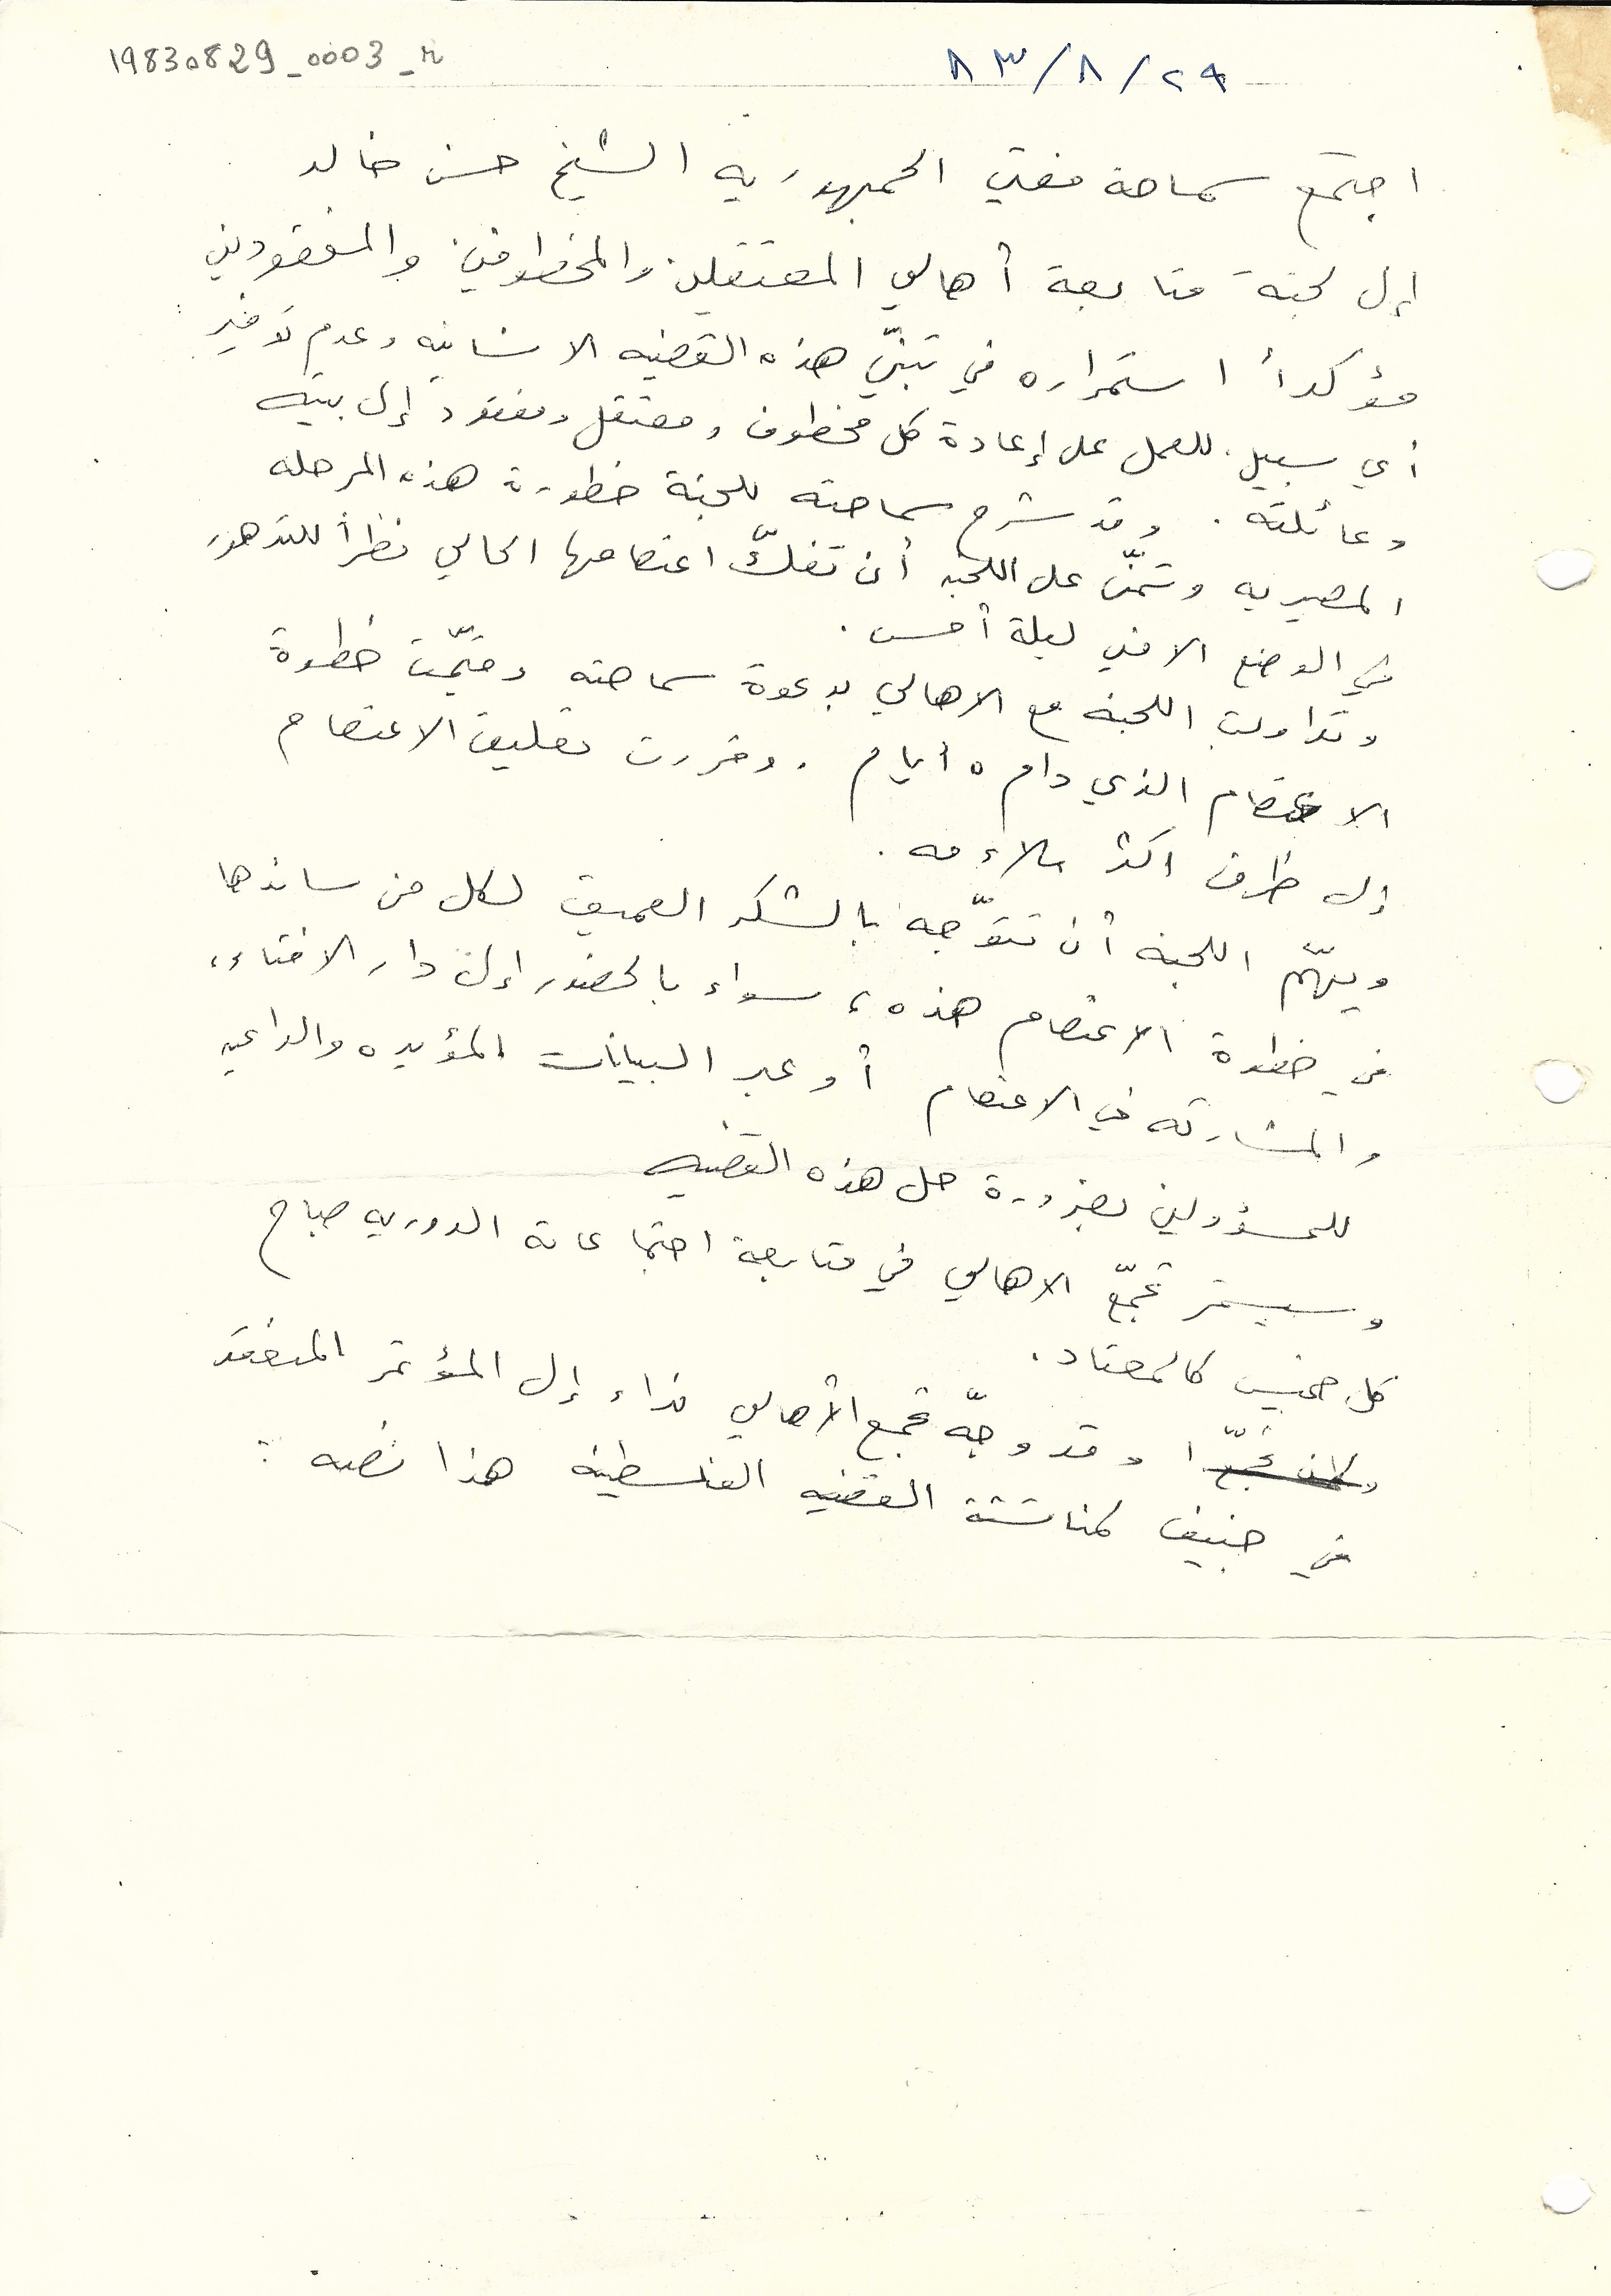 19830829_0003_r
٨٣/٨/٢٩
اجتمع سماحة مفتي الجمهوريه الشيخ حسن خالد
إلى لجنة متابعة أهالي المعتقلين والمخطوفين والمفقودين
مؤكداً استمراره في تبنّي هذه القضيه الانسانيه وعدم توفير
أي سبيل للعمل على إعادة كل مخطوف ومعتقل ومفقود إلى بيته
وعائلته. وقد شرح سماحته للجنة خطورة هذه المرحله
المصيريه وتمنّى على اللجنه أن تفكّ اعتصامها الحالي نظراً للتدهور
في الوضع الامني ليلة أمس.
وتداولت اللجنه مع الاهالي بدعوة سماحته وقيّمت خطوة
الاعتصام الذي دام ٥ أيام. وقررت تعليق الاعتصام
إلى ظرف اكثر ملاءمه.
ويهمّ اللجنه أن تتوّجه بالشكر العميق لكل من ساندها
في خطوة الاعتصام هذه، سواء بالحضور إلى دار الافتاء،
والمشاركه في الاعتصام أو عبر البيانات المؤيده والداعيه
للمسؤولين بضرورة حل هذه القضيه
وسيستمر تجمّع الاهالي في متابعة اجتماعاته الدوريه صباح
كل خميس كالمعتاد.
وقد وجّه تجمع الأهالي نداء إلى المؤتمر المنعقد
في جنيف لمناقشة القضيه الفلسطينيه هذا نصه: